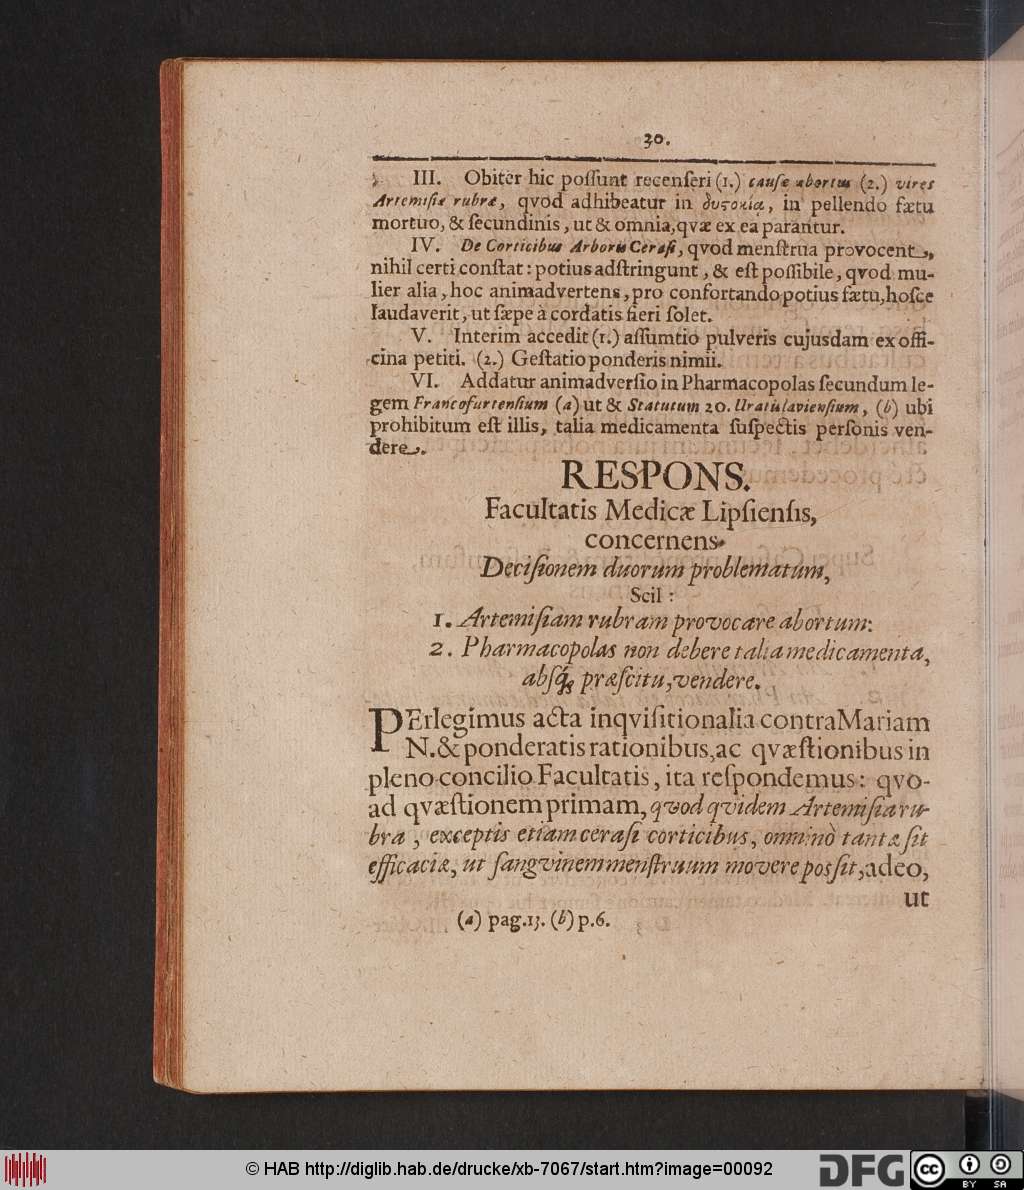 30.
III. Obiter hic poſſunt recenſeri (1.) cauſæ abortus (2.) vires
Artemiſiæ rubræ, qvod adhibeatur in δυςοκία, in pellendo fætu
mortuo, & ſecundinis, ut & omnia, qvæ ex ea parantur.
IV. De Corticibus Arboris Ceraſi, qvod menſtrua provocent,
nihil certi conſtat: potius adſtringunt, & eſt poſſibile, qvod mu-
lier alia, hoc animadvertens, pro confortando potius fætu, hoſce
laudaverit, ut ſæpe à cordatis fieri ſolet.
V. Interim accedit (1.) aſſumtio pulveris cujusdam ex offi-
cina petiti. (2.) Geſtatio ponderis nimii.
VI. Addatur animadverſio in Pharmacopolas ſecundum le-
gem Francofurtenſium (a) ut & Statutum 20. Uratislavienſium, (b) ubi
prohibitum eſt illis, talia medicamenta ſuſpectis perſonis ven-
dere.
RESPONS.
Facultatis Medicæ Lipſienſis,
concernens
Deciſionem duorum problematum,
Scil:
1. Artemiſiam rubram provocare abortum:
2. Pharmacopolas non debere talia medicamenta,
abſq; præſcitu, vendere.
PErlegimus acta inqviſitionalia contra Mariam
N. & ponderatis rationibus, ac qvæſtionibus in
pleno concilio Facultatis, ita reſpondemus: qvo-
ad qvæſtionem primam, qvod qvidem Artemiſia ru-
bra, exceptis etiam ceraſi corticibus, omninò tantæ ſit
efficaciæ, ut ſangvinem menſtruum movere poſſit, adeo,
ut
(a) pag. 13. (b) p. 6.
© HAB http://diglib.hab.de/drucke/xb-7067/start.htm?image=00092
DFG
cc BY SA